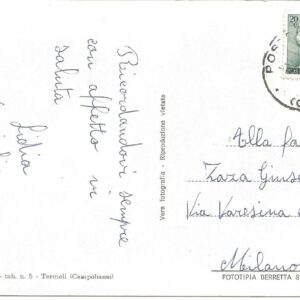 Ricordandovi sempre
con affetto vi
saluta
Lidia
Vera fotografia - Riproduzione vietata
tab. n. 5 - Termoli (Campobasso)
20
POS
Alla fa
Zaza Gius
Via Varesina
Milano
FOTOTIPIA BERRETTA S